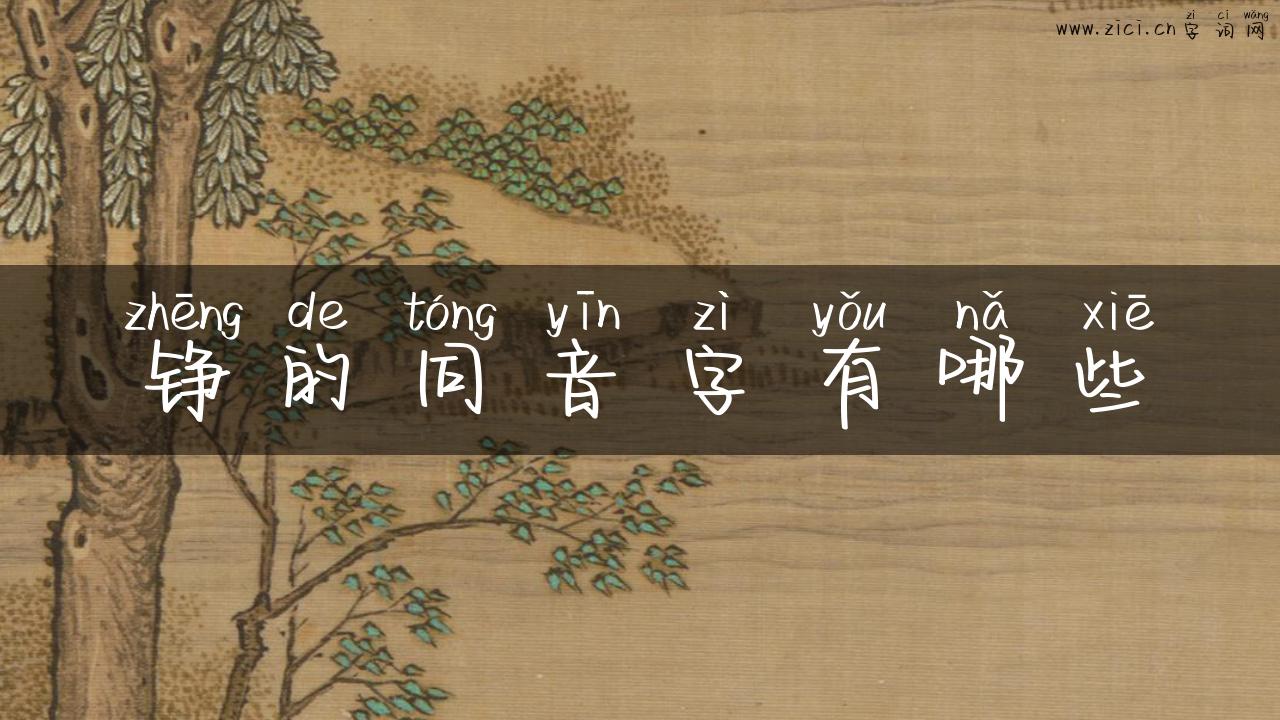 zì cí wǎng
www.zici.cn字词网
zhēng de tóng yīn zì yǒu nǎ xiē
铮的同音字有哪些